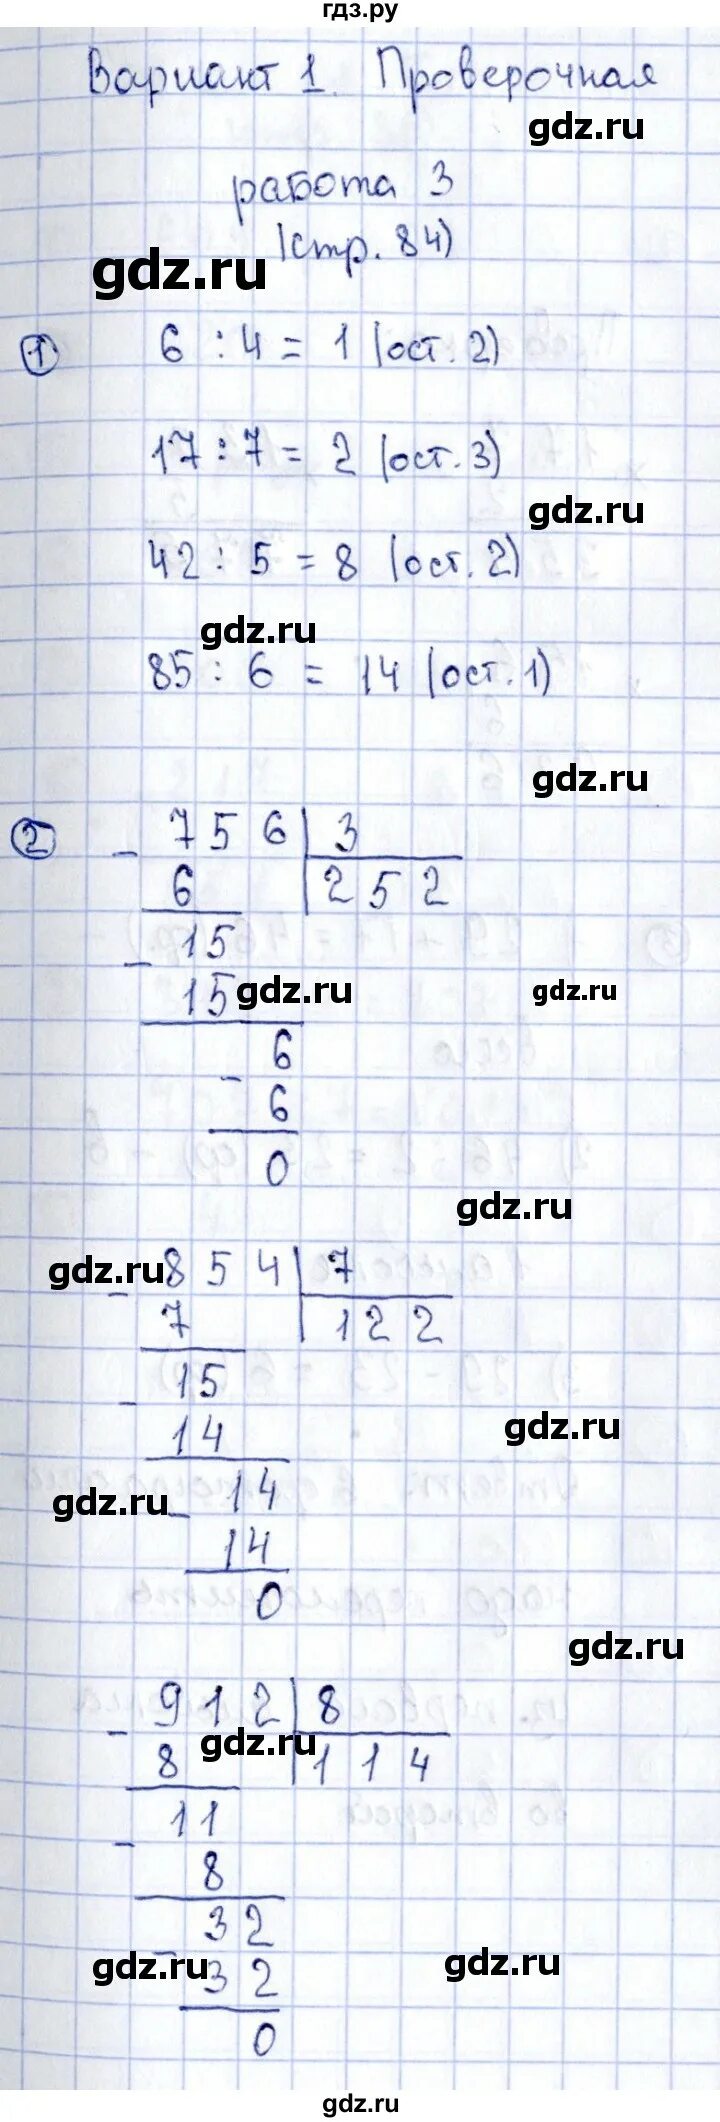 гдз.ру
Вариант 1. Проверочная
gdz.ru
работа 3
(стр. 84)
gdz.ru
① 6 : 4 = 1 (ост. 2)
17 : 7 = 2 (ост. 3)
gdz.ru
42 : 5 = 8 (ост. 2)
gdz.ru
85 : 6 = 14 (ост. 1)
gdz.ru
② - 756 | 3
6 | 252
- 15
15
gdz.ru gdz.ru
- 6
6
0
gdz.ru
gdz.ru
- 854 | 7
7 | 122
- 15
14
gdz.ru
gdz.ru
- 14
14
0
gdz.ru
- 912 | 8
gdz.ru
8 | 114
- 11
8
- 32
gdz.ru gdz.ru
32
0
gdz.ru